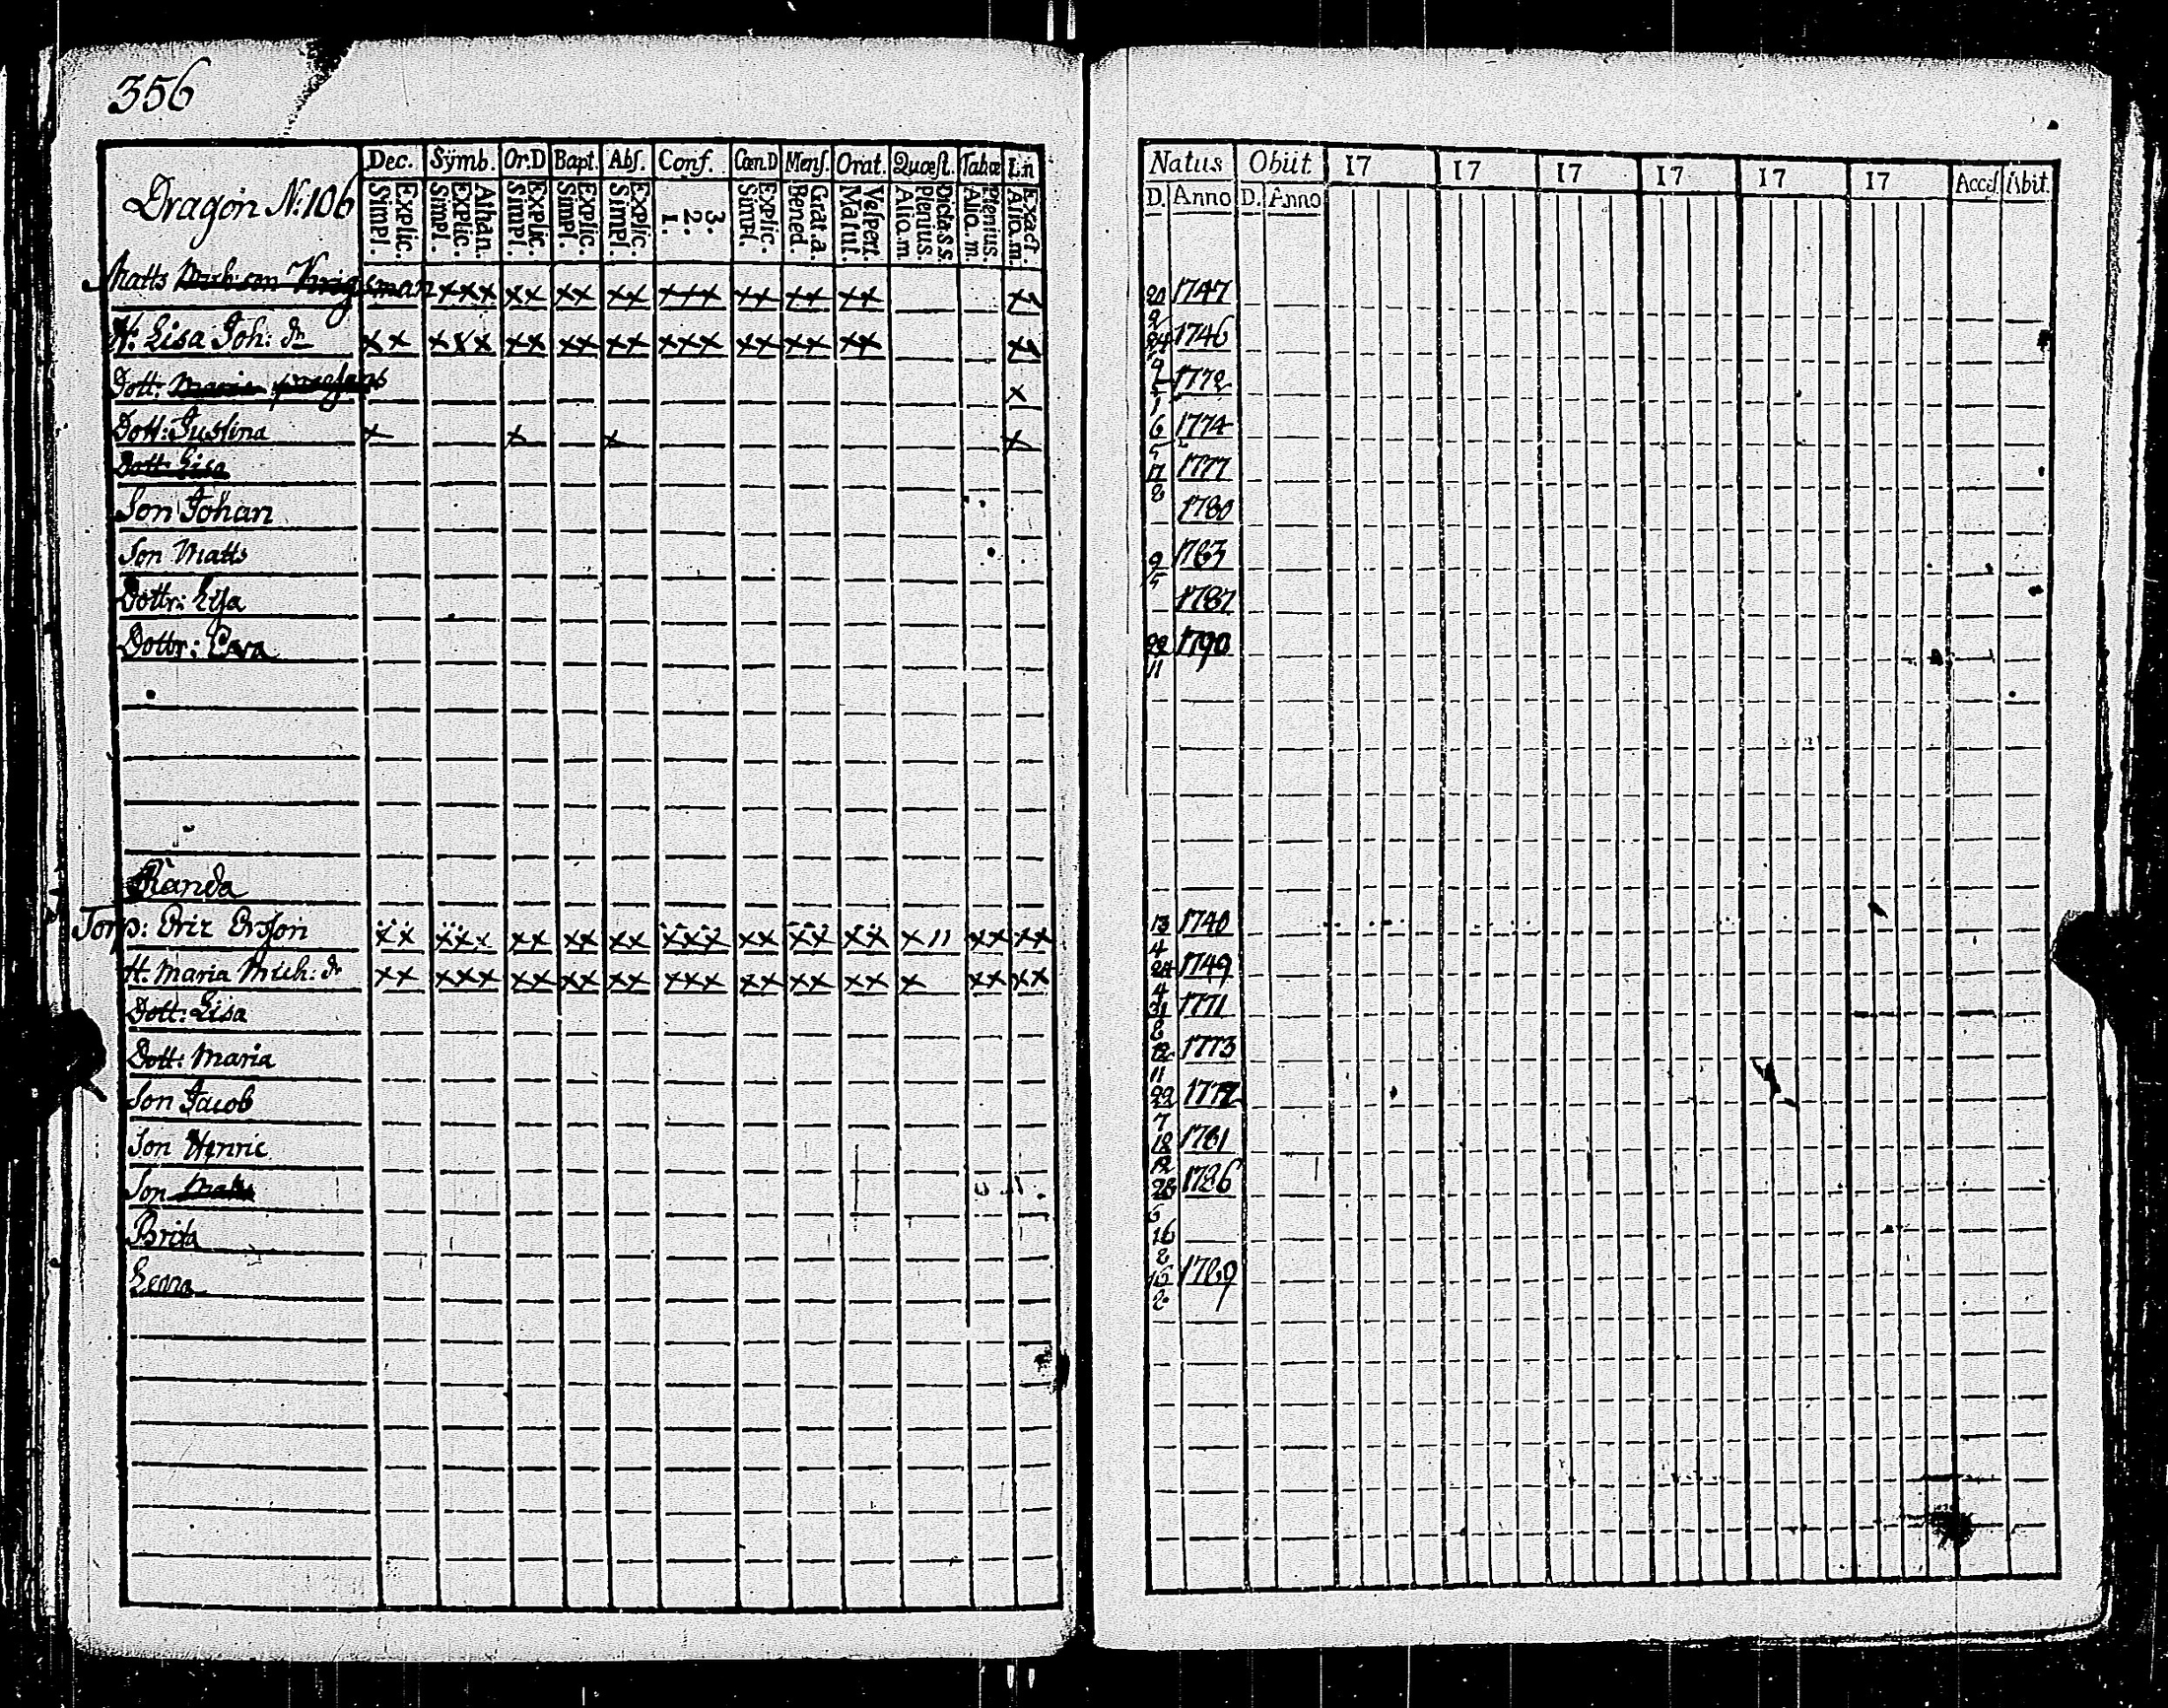 356
Dec. Symb. Or.D Bapt. Abſ. Conf. Cœn.D Menſ. Orat. Quæſt. Tabæ L.n
Natus Obiit 17 17 17 17 17 17 Acceſ. Abit.
Dragon N:106 Simpl. Explic. Simpl. Explic. Athan. Simpl. Explic. Simpl. Explic. Simpl. Explic. 1. 2. 3. Simpl. Explic. Bened. Grat.a. Matut. Veſpert. Aliq.m. Plenius. Dicta s.s. Aliq.m. Plenius. Aliq.m. Exact.
D. Anno D. Anno
Matts xxx xx xx xx xxx xx xx xx xx 20 2 1747
H: Lisa Joh: dr xx xxx xx xx xx xxx xx xx xx xx 24 9 1746
Dott: Maria x 1 1772
Dott: Justina x x x x 6 5 1774
Dott: Lisa 17 8 1777
Son Johan 1780
Son Matts 9 5 1783
Dottr: Lisa 1787
Dottr: 11 1790
Randa
Torp: Eric Ersson xx xxx xx xx xx xxx xx xx xx x11 xx xx 13 4 1740
H. Maria Mich: dr xx xxx xx xx xx xxx xx xx xx x xx xx 24 4 1749
Dott: Lisa 31 8 1771
Dott: Maria 12 11 1773
Son Jacob 22 7 1777
Son Henric 18 12 1781
Son Matts 28 6 1786
Brita 16 2
Leena 16 2 1789